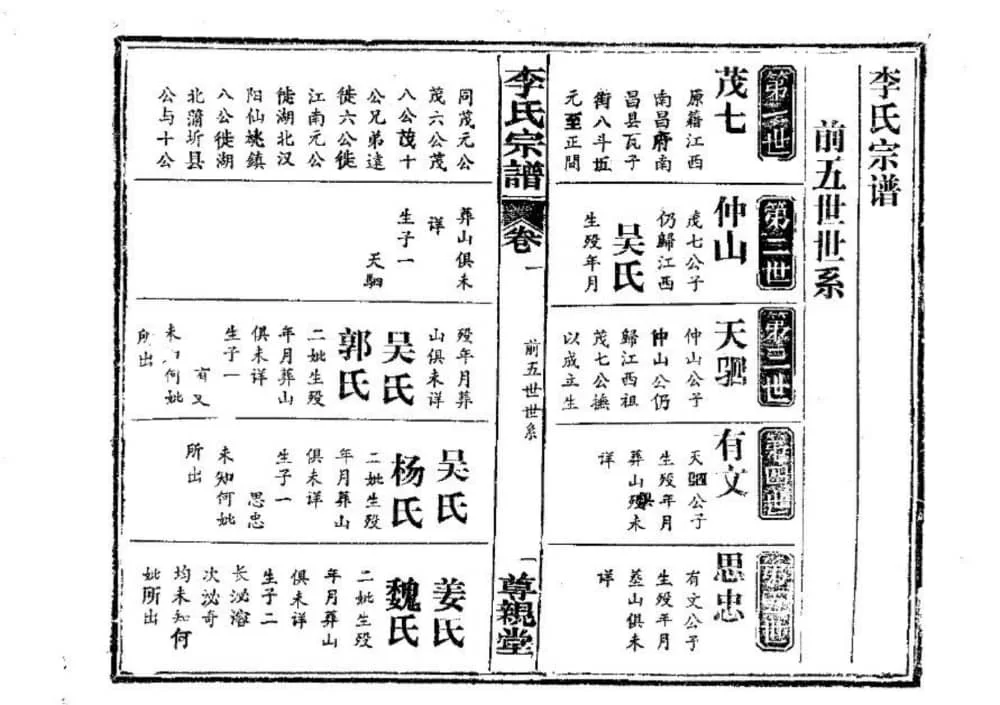 李氏宗谱
前五世世系
第一世
茂七
原籍江西
南昌府南
昌县瓦子
街八斗坵
元至正間
第二世
仲山
戊七公子
仍歸江西
吴氏
生殁年月
第三世
天驷
仲山公子
仲山公仍
歸江西祖
茂七公撫
以成立生
第四世
有文
天驷公子
生殁年月
葬山未
详
第五世
思忠
有文公子
生殁年月
葬山俱未
详
李氏宗譜
卷一
前五世世系
一
尊親堂
同茂元公
茂六公茂
八公茂十
公兄弟達
徙六公徙
江南元公
徙湖北汉
阳仙姚鎮
八公徙湖
北蒲圻县
公与十公
葬山俱未
详
生子一
天驷
殁年月葬
山俱未详
吴氏
郭氏
二妣生殁
年月葬山
俱未详
生子一
有又
未知何妣
所出
吴氏
杨氏
二妣生殁
年月葬山
俱未详
生子一
思忠
未知何妣
所出
姜氏
魏氏
二妣生殁
年月葬山
俱未详
生子二
长泌溶
次泌奇
均未知何
妣所出